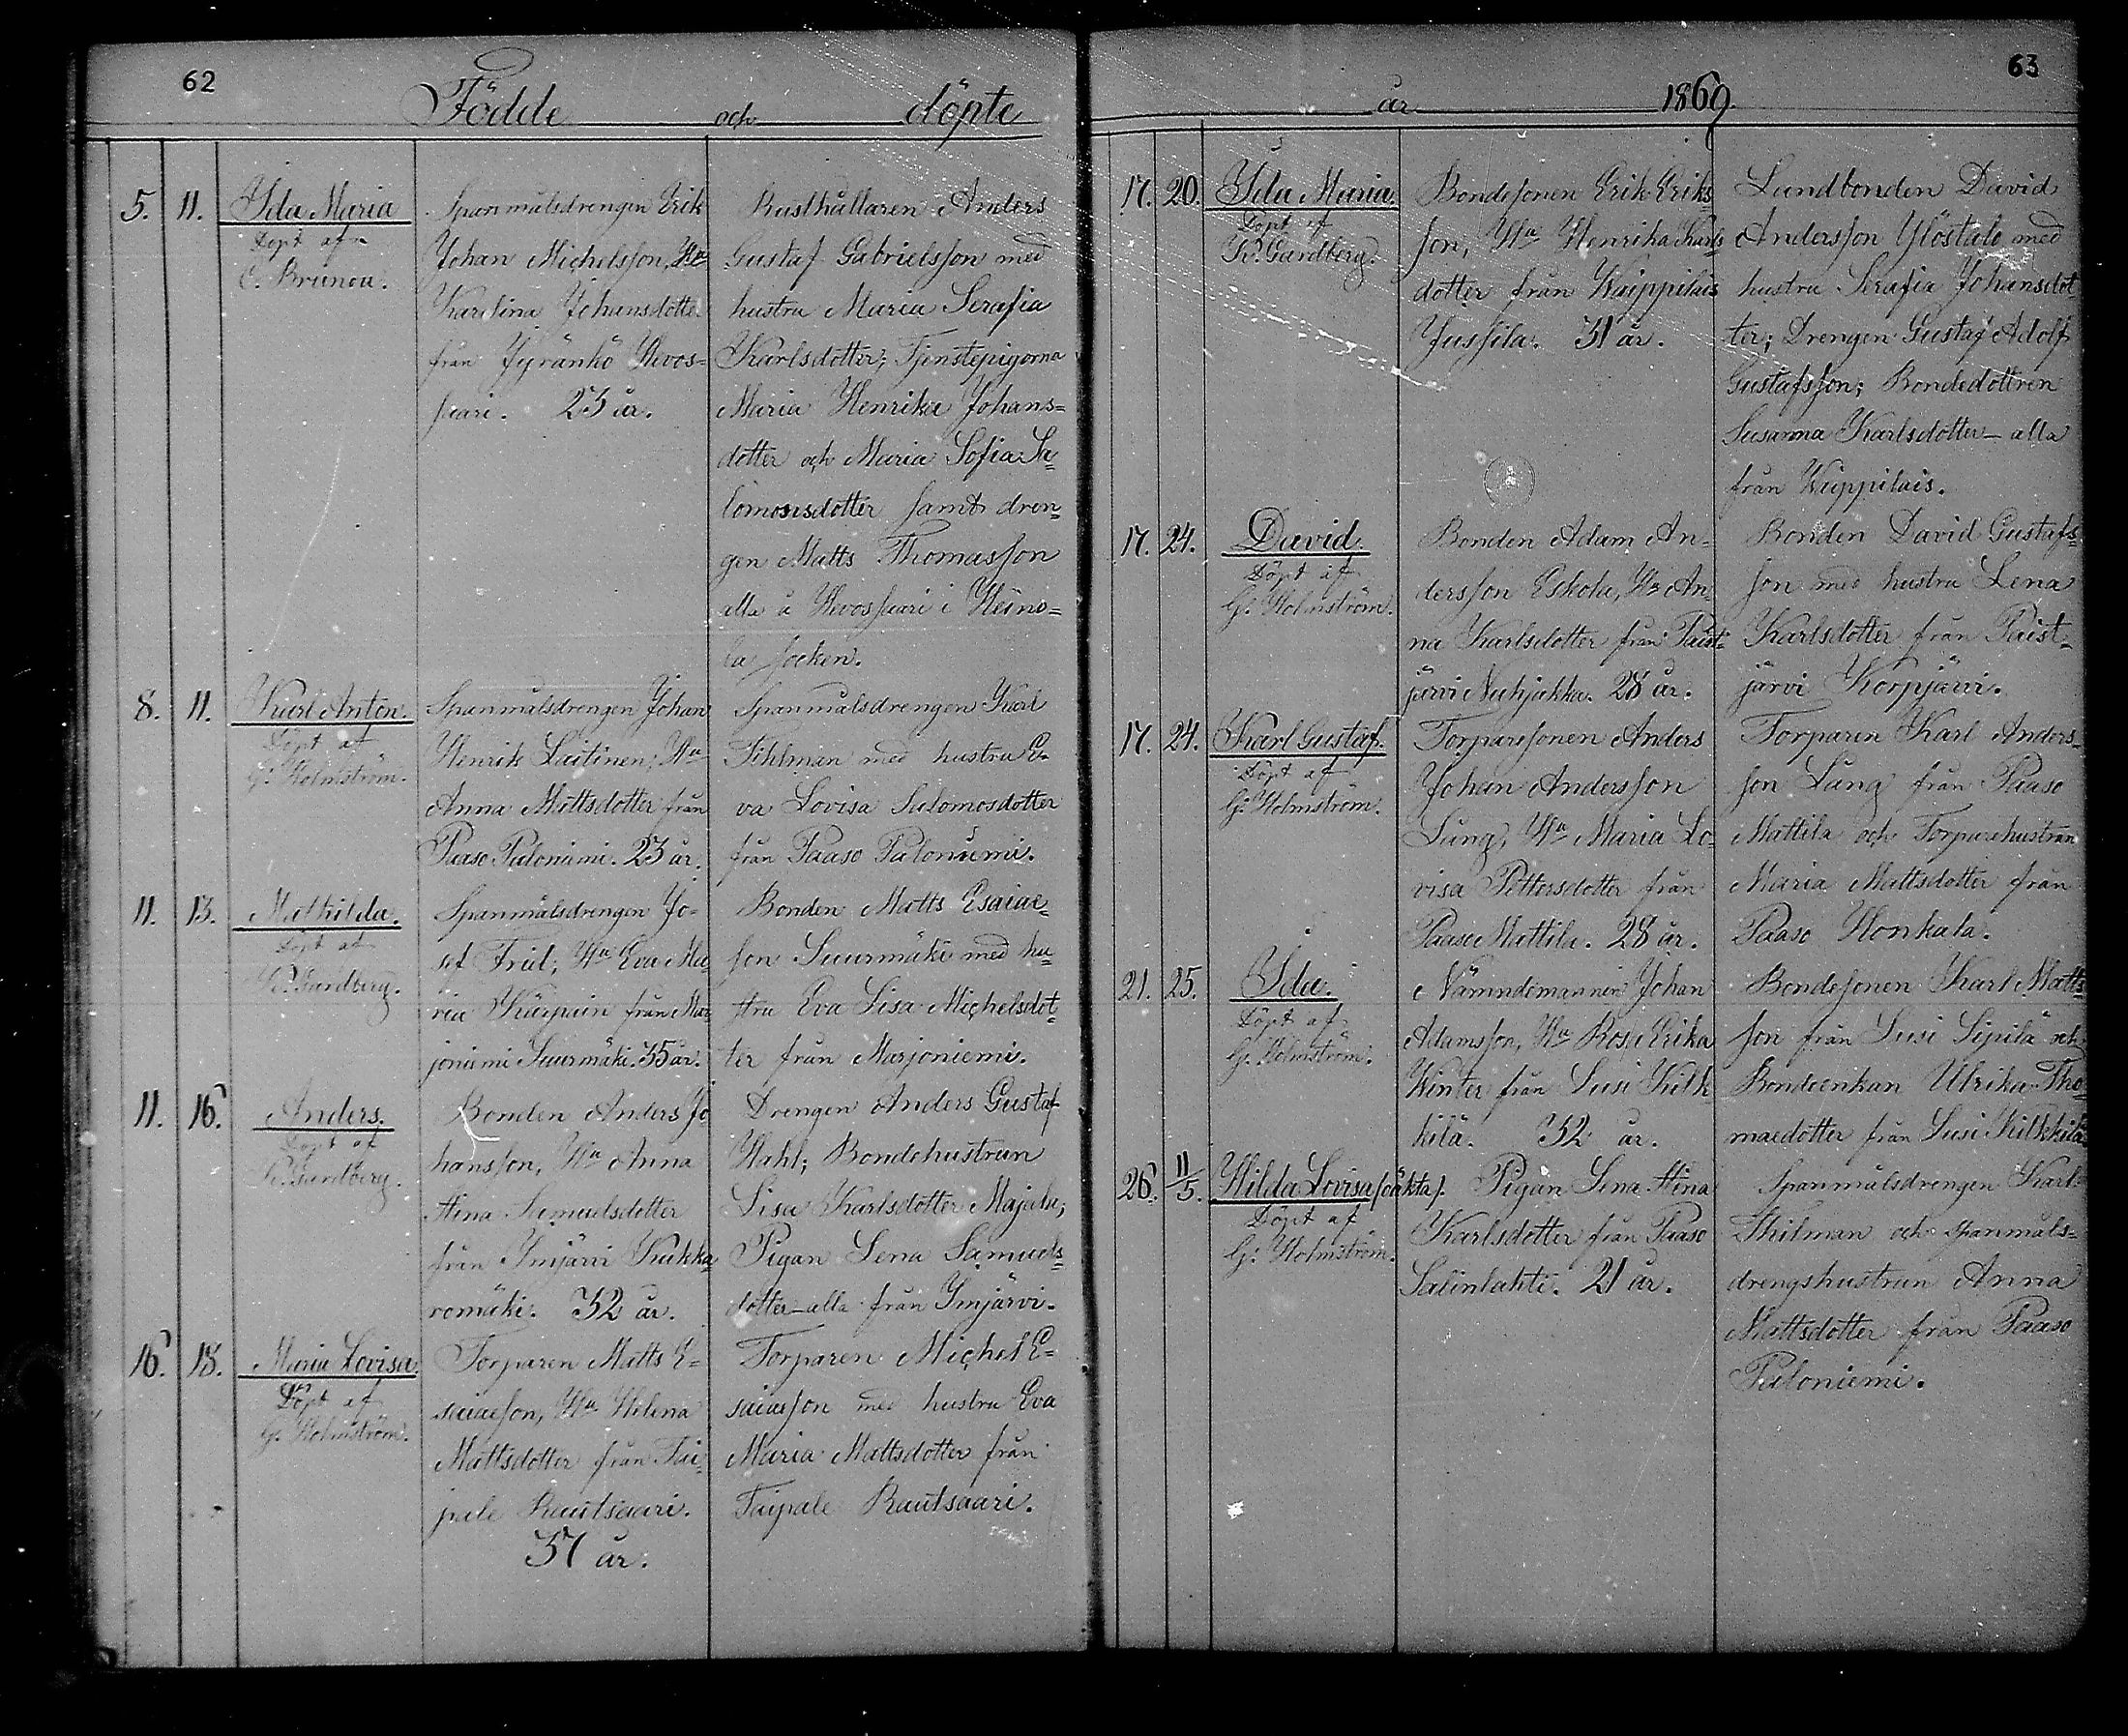 62
Födde och döpte
5. 11. Ida Maria
Döpt af
C. Brunou.
Spanmålsdrengen Erik
Johan Michelsson, Hu
Karolina Johansdotter
från Jyränkö Hevos-
saari. 23 år.
Rusthållaren Anders
Gustaf Gabrielsson med
hustru Maria Serafia
Karlsdotter; Tjenstepigorna
Maria Henrika Johans=
dotter och Maria Sofia Sa-
lomonsdotter samt dren-
gen Matts Thomasson
alla å Hevossaari i Heino=
la socken.
8. 11. Karl Anton.
Döpt af
G. Holmström.
Spanmålsdrengen Johan
Henrik Laitinen; Hu
Anna Mattsdotter från
Paaso Paloniemi. 23 år.
Spanmålsdrengen Karl
Tihlman med hustru E-
va Lovisa Salomosdotter
från Paaso Paloniemi.
11. 13. Mathilda.
Döpt af
K. Gardberg.
Spanmålsdrengen Jo-
sef Frid; Hu Eva Ma-
ria Kärpäin från Mar-
joniemi Suurmäki. 35 år.
Bonden Matts Esaiae-
son Suurmäki med hu-
stru Eva Lisa Michelsdot-
ter från Marjoniemi.
11. 16. Anders.
Döpt af
K. Gardberg.
Bonden Anders Jo-
hansson, Hu Anna
Stina Samuelsdotter
från Imjärvi Kukka-
romäki. 32 år.
Drengen Anders Gustaf
Wahl; Bondehustrun
Lisa Karlsdotter Majala;
Pigan Lena Samuels-
dotter alla från Imjärvi.
16. 18. Maria Lovisa.
Döpt af
G. Holmström.
Torparen Matts E=
saiaeson, Hu Helena
Mattsdotter från Tai-
pale Rautsaari.
37 år.
Torparen Michel E=
saiaeson med hustru Eva
Maria Mattsdotter från
Taipale Rautsaari.
63
år 1869
17. 20. Ida Maria.
Döpt af
K. Gardberg.
Bondesonen Erik Eriks-
son, Hu Henrika Karls-
dotter från Waippilais
Jussila. 31 år.
Landbonden David
Andersson Ylöstalo med
hustru Serafia Johansdot-
ter; Drengen Gustaf Adolf
Gustafsson; Bondedottren
Susanna Karlsdotter - alla
från Waippilais.
17. 24. David.
Döpt af
G. Holmström.
Bonden Adam An-
dersson Eskola, Hu An-
na Karlsdotter från Paist-
järvi Nuhjakka. 28 år.
Bonden David Gustafs-
son med hustru Lena
Karlsdotter från Paist-
järvi Korpjärvi.
17. 24. Karl Gustaf.
Döpt af
G. Holmström.
Torparesonen Anders
Johan Andersson
Lång, Hu Maria Lo-
visa Pettersdotter från
Paaso Mattila. 28 år.
Torparen Karl Anders-
son Lång från Paaso
Mattila och Torparehustrun
Maria Mattsdotter från
Paaso Honkala.
21. 25. Ida.
Döpt af
G. Holmström.
Nämndemannen Johan
Adamsson, Hu Rosa Erika
Winter från Lusi Kilk-
kilä. 32 år.
Bondesonen Karl Matts-
son från Lusi Sipilä och
Bondeenkan Ulrika Tho-
maedotter från Lusi Kilkkilä.
26. 11/5. Hilda Lovisa /oäkta/.
Döpt af
G. Holmström.
Pigan Lena Stina
Karlsdotter från Paaso
Salinlahti. 21 år.
Spanmålsdrengen Karl
Thilman och spanmåls=
drengshustrun Anna
Mattsdotter från Paaso
Paloniemi.